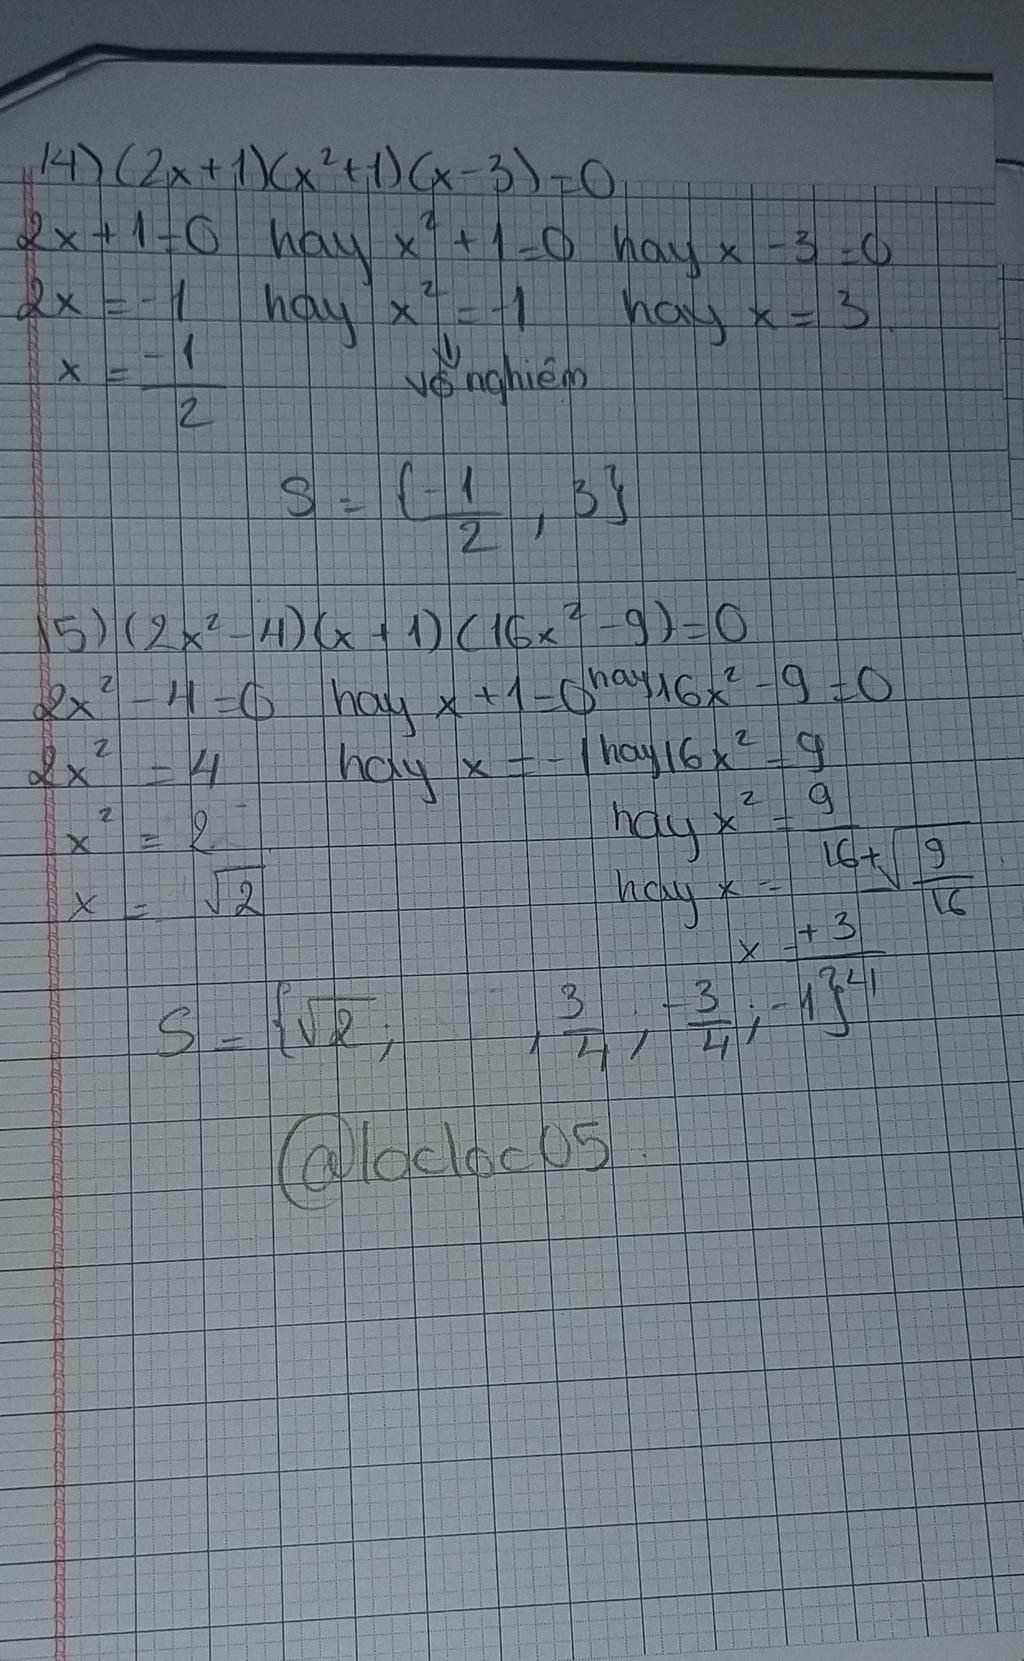 14) (2x+1)(x²+1)(x-3)=0
2x+1=0 hay x²+1=0 hay x-3=0
2x=-1 hay x²=-1 hay x=3
x=-1/2 vô nghiêm
S={-1/2, 3}
15) (2x²-4)(x+1)(16x²-9)=0
2x²-4=0 hay x+1=0 hay 16x²-9=0
2x²=4 hay x=-1 hay 16x²=9
x²=2 hay x²=9/16
x=√2 hay x=+√9/16
x=+3/4
S={√2; , 3/4, -3/4; -1}
@locloc05